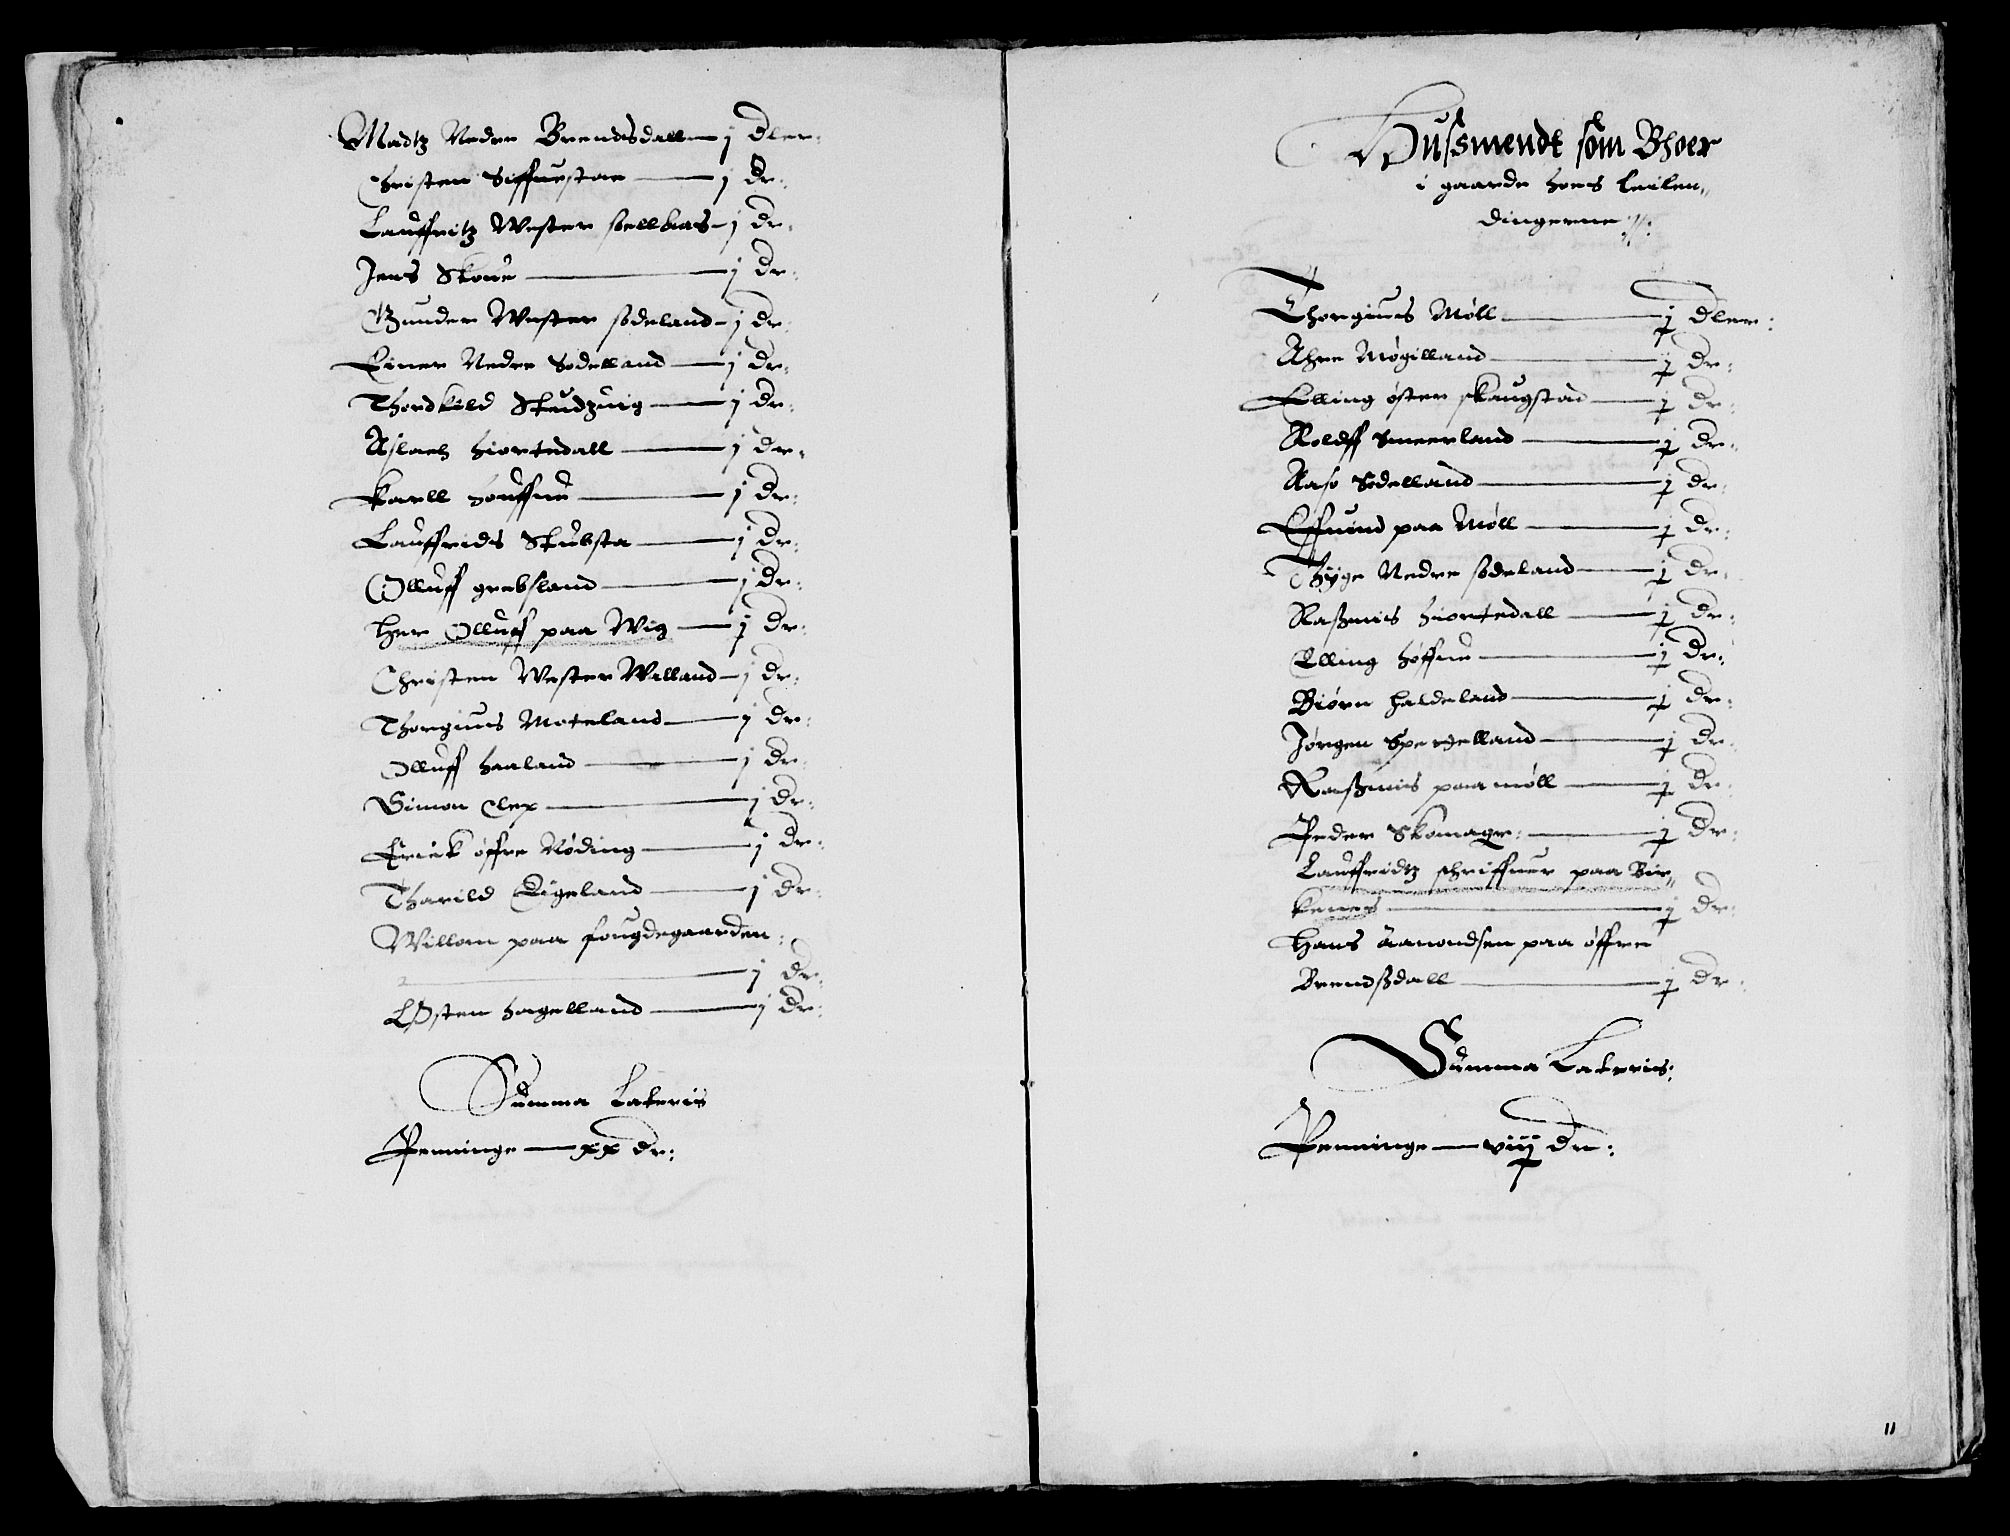 Madtz Nedre Brendsdall — j Dler:
Christen Siffuestae — j Dr:
Lauffritz Wester soellaas — j Dr:
Jens Skoue — j Dr:
Gunder Wester sodeland — j Dr:
Einer Nedre Sodelland — j Dr:
Thordkild Studzuig — j Dr:
Aslach Hiortedall — j Dr:
Karll Houffue — j Dr:
Lauffrids Skubsta — j Dr:
Olluff grebsland — j Dr:
Her Olluff paa Wig — j Dr:
Christen Wester Willand — j Dr:
Thorgiuls Moteland — j Dr:
Olluff Haaland — j Dr:
Simon Clep — j Dr:
Erick øffre Nøding — j Dr:
Tharild Eigeland — j Dr:
Willom paa fougdegaarden:
— j Dr:
Østen Hagelland — j Dr:
Summa Lateris
Penninge — xx Dr:
Hussmendt som Bhoer
i gaarde hoes Leilen„
dingerne
Thorgiuls Møll — j Dler:
Ahre Møgilland — j Dr:
Elling øster skaugstad — j Dr:
Roleff Smeerland — j Dr:
Aase Sodelland — j Dr:
Effuind paa Møll — j Dr:
Thyge Nedre sodeland — j Dr:
Rassmus Hiortedall — j Dr:
Elling Høffue — j Dr:
Biørn Haldeland — j Dr:
Jørgen Sperdelland — j Dr:
Rassmus paa møll — j Dr:
Peder Skomager: — j Dr:
Lauffridtz schriffuer paa Bir„
kenes — j Dr:
Hans Aanondsen paa øffre
Brendssdall — j Dr:
Summa Lateris:
Penninge — viij Dr:
11